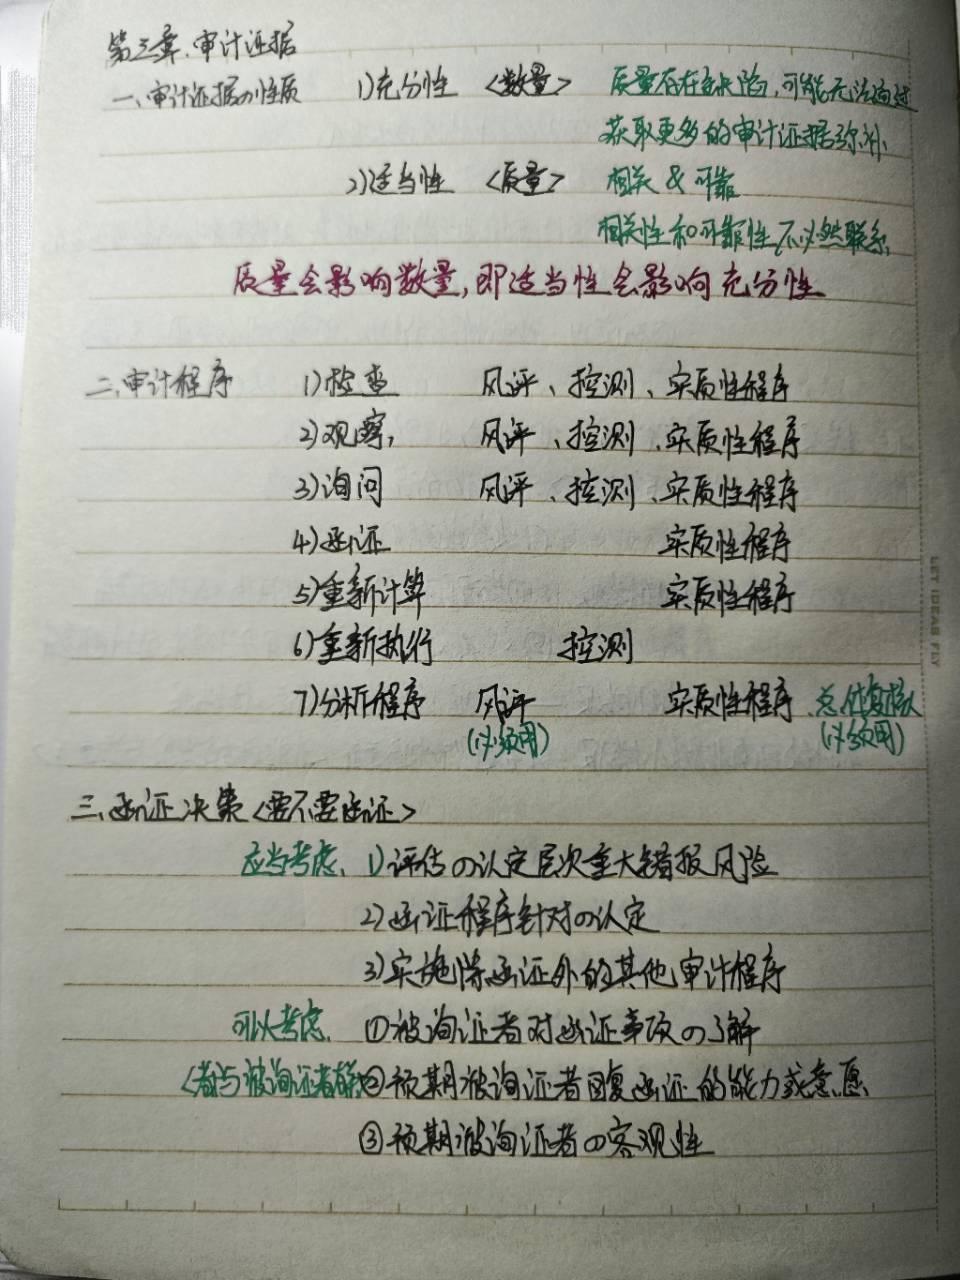 第三章、审计证据
一、审计证据の性质 1)充分性 <数量> 质量存在缺陷,可能无法通过
获取更多的审计证据弥补
2)适当性 <质量> 相关 & 可靠
相关性和可靠性不必然联系
质量会影响数量,即适当性会影响充分性
二、审计程序 1)检查 风评、控测、实质性程序
2)观察, 风评、控测、实质性程序
3)询问 风评、控测、实质性程序
4)函证 实质性程序
5)重新计算 实质性程序
6)重新执行 控测
7)分析程序 风评 实质性程序、总体复核
(必须用) (必须用)
三、函证决策<要不要函证>
应当考虑、1)评估の认定层次重大错报风险
2)函证程序针对の认定
3)实施除函证外的其他审计程序
可以考虑、①被询证者对函证事项の了解
<都与被询证者有关>②预期被询证者回复函证的能力或意愿
③预期被询证者の客观性
LET IDEAS FLY